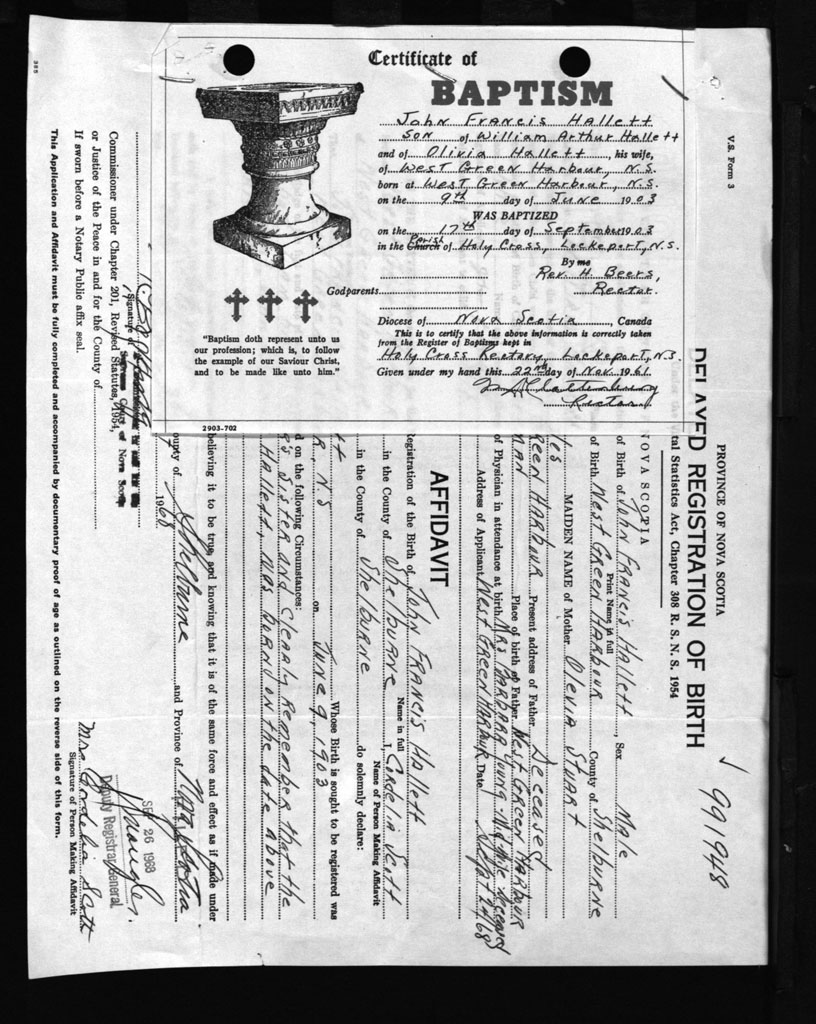 Certificate of
BAPTISM
John Francis Hallett
Son of William Arthur Hallett
and of Olivia Hallett, his wife,
of West Green Harbour, N.S.
born at West Green Harbour, N.S.
on the 9th day of June 1903
WAS BAPTIZED
on the 17th day of September 1903
in the Parish Church of Holy Cross, Lockeport, N.S.
By me
Rev. H. Beers,
Rector.
Godparents
Diocese of Nova Scotia, Canada
This is to certify that the above information is correctly taken
from the Register of Baptisms kept in
Holy Cross Rectory, Lockeport, N.S.
Given under my hand this 22nd day of Nov. 1961
Rector
"Baptism doth represent unto us
our profession; which is, to follow
the example of our Saviour Christ,
and to be made like unto him."
2903-702
V.S. Form 3
991948
PROVINCE OF NOVA SCOTIA
DELAYED REGISTRATION OF BIRTH
tal Statistics Act, Chapter 308 R. S. N. S. 1954
NOVA SCOTIA
of Birth of John Francis Hallett, Sex Male
Print Name in full
of Birth West Green Harbour County of Shelburne
MAIDEN NAME of Mother Olevia Stuart
reen Harbour Present address of Father Deceased
Place of birth of Father West Green Harbour
of Physician in attendance at birth Mrs Barbara Young Midwife deceased
Address of Applicant West Green Harbour Date Sept 24/68
AFFIDAVIT
egistration of the Birth of John Francis Hallett
Name in full
in the County of Shelburne I, Cordelia Scott
Name of Person Making Affidavit
in the County of Shelburne do solemnly declare:
tt Whose Birth is sought to be registered was
R, N.S on June 9, 1903
d on the following Circumstances:
's Sister and clearly remember that the
Hallett, was born on the date above
believing it to be true, and knowing that it is of the same force and effect as if made under
ounty of Shelburne and Province of Nova Scotia
1968
Signature of
Commissioner under Chapter 201, Revised Statutes, 1954,
or Justice of the Peace in and for the County of
If sworn before a Notary Public affix seal.
SEP 26 1968
Deputy Registrar General
Mrs Cordelia Scott
Signature of Person Making Affidavit
This Application and Affidavit must be fully completed and accompanied by documentary proof of age as outlined on the reverse side of this form.